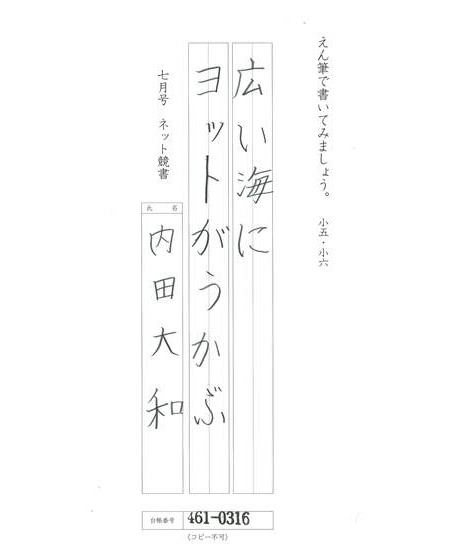 えん筆で書いてみましょう。　小五・小六
広い海に
ヨットがうかぶ
七月号　ネット競書
氏　名
内田大和
台帳番号　461-0316
(コピー不可)